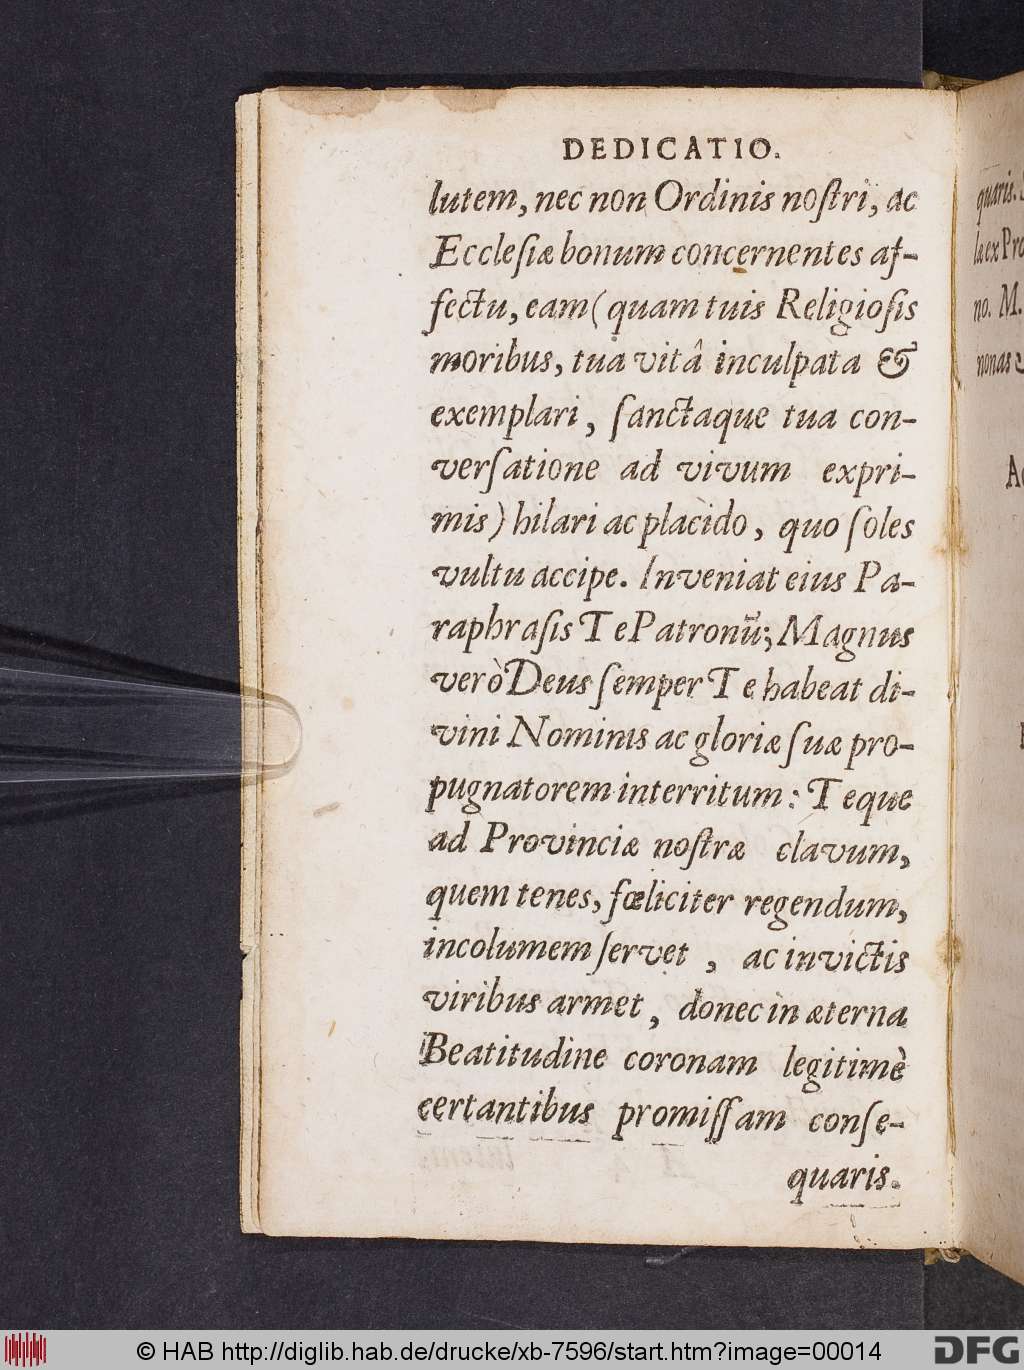 DEDICATIO.
lutem, nec non Ordinis noſtri, ac
Eccleſiæ bonum concernentes af-
fectu, eam (quam tuis Religioſis
moribus, tua vitâ inculpata &
exemplari, ſanctaque tua con-
verſatione ad vivum expri-
mis) hilari ac placido, quo ſoles
vultu accipe. Inveniat eius Pa-
raphraſis Te Patronũ; Magnus
verò Deus ſemper Te habeat di-
vini Nominis ac gloriæ ſuæ pro-
pugnatorem interritum: Teque
ad Provinciæ noſtræ clavum,
quem tenes, fœliciter regendum,
incolumem ſervet, ac invictis
viribus armet, donec in æterna
Beatitudine coronam legitimè
certantibus promiſſam conſe-
quaris.
quaris.
la ex Pro
no. M.
nonas
© HAB http://diglib.hab.de/drucke/xb-7596/start.htm?image=00014
DFG